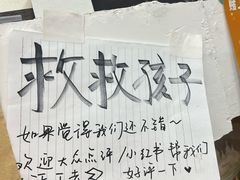 救救孩子
如果觉得我们还不错～
欢迎大众点评/小红书 帮我们
好评一下♥